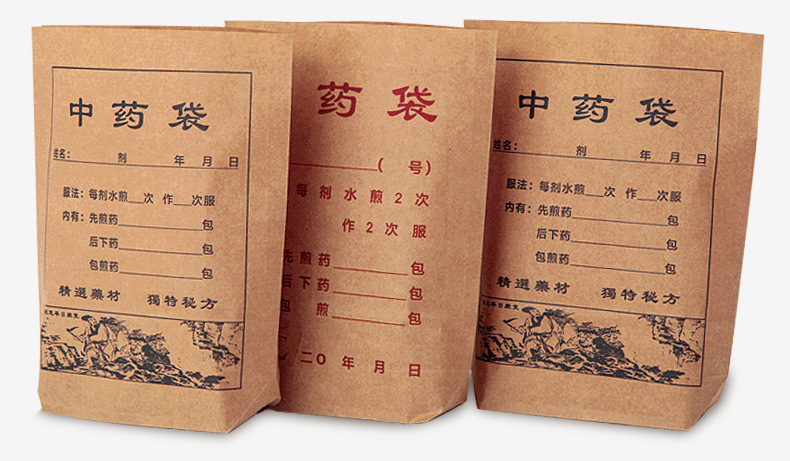 中药袋
姓名：________剂____年__月__日
服法：每剂水煎__次 作__次服
内有：先煎药________包
后下药________包
包煎药________包
精選藥材 獨特秘方
药袋
________( 号)
每剂水煎2次
作2次服
先煎药________包
后下药________包
包 煎________包
二〇 年 月 日
中药袋
姓名：________剂____年__月__日
服法：每剂水煎__次 作__次服
内有：先煎药________包
后下药________包
包煎药________包
精選藥材 獨特秘方